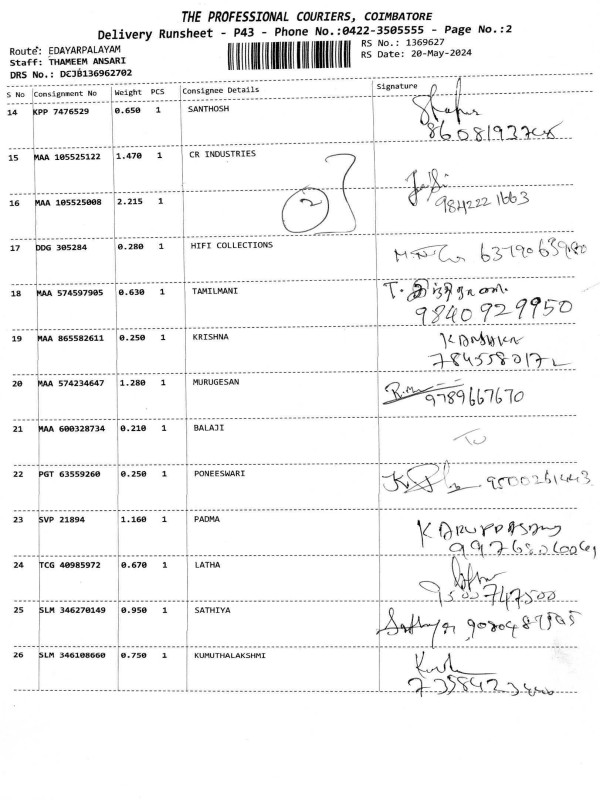 THE PROFESSIONAL COURIERS, COIMBATORE
Delivery Runsheet - P43 - Phone No.:0422-3505555 - Page No.:2
Route: EDAYARPALAYAM
RS No.: 1369627
Staff: THAMEEM ANSARI
RS Date: 20-May-2024
DRS No.: DCJB136962702
S No Consignment No Weight PCS Consignee Details Signature
14 KPP 7476529 0.650 1 SANTHOSH
15 MAA 105525122 1.470 1 CR INDUSTRIES
2
16 MAA 105525008 2.215 1
9842221663
17 DDG 305284 0.280 1 HIFI COLLECTIONS
18 MAA 574597905 0.630 1 TAMILMANI
9840929950
19 MAA 865582611 0.250 1 KRISHNA
20 MAA 574234647 1.280 1 MURUGESAN
9789667670
21 MAA 600328734 0.210 1 BALAJI
22 PGT 63559260 0.250 1 PONEESWARI
23 SVP 21894 1.160 1 PADMA
24 TCG 40985972 0.670 1 LATHA
9500747500
25 SLM 346270149 0.950 1 SATHIYA
Sathiya
26 SLM 346108660 0.750 1 KUMUTHALAKSHMI